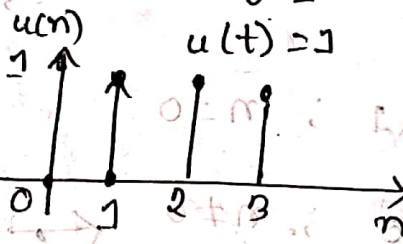 u(n)
u(t) = 1
1
0 1 2 3
n